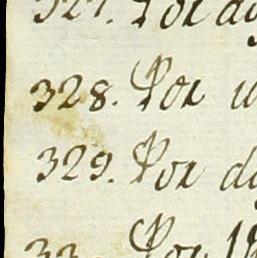 327. Por
328. Por
329. Por
33 Por